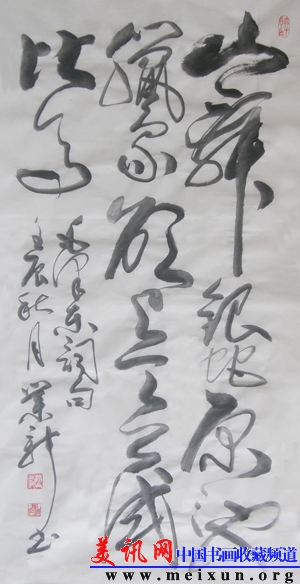 山舞銀蛇原馳
蠟象欲与天公試
比高
毛泽东词句
壬辰秋月業新书
美讯网 中国书画收藏频道
www.meixun.org